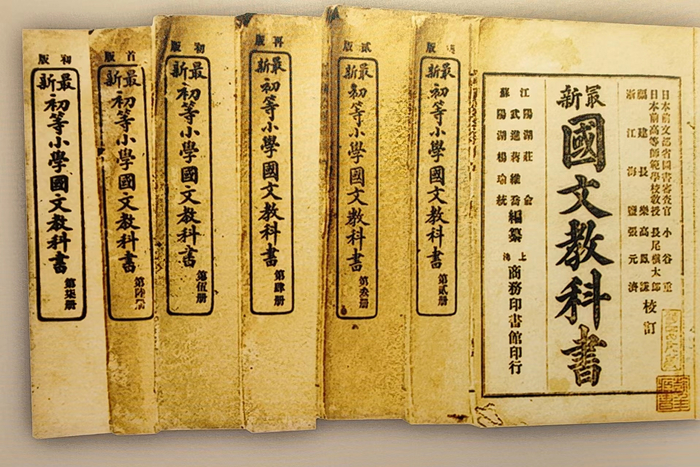 日本前文部省圖書審查官 小谷重
日本前高等師範學校教授 長尾槇太郎
福建長樂高鳳謙
浙江海鹽張元濟
校訂
最新
國文教科書
江蘇
陽湖莊俞
武進蔣維喬
陽湖楊瑜統
編纂
上海
商務印書館印行
版
最新
初等小學國文教科書
第貳册
貳版
最新
初等小學國文教科書
第叁册
再版
最新
初等小學國文教科書
第肆册
初版
最新
初等小學國文教科書
第伍册
首版
最新
初等小學國文教科書
第陸册
初版
最新
初等小學國文教科書
第柒册